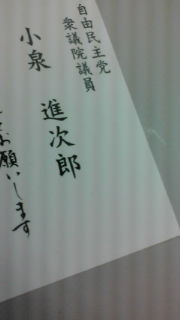 自由民主党
衆議院議員
小泉 進次郎
お願いします